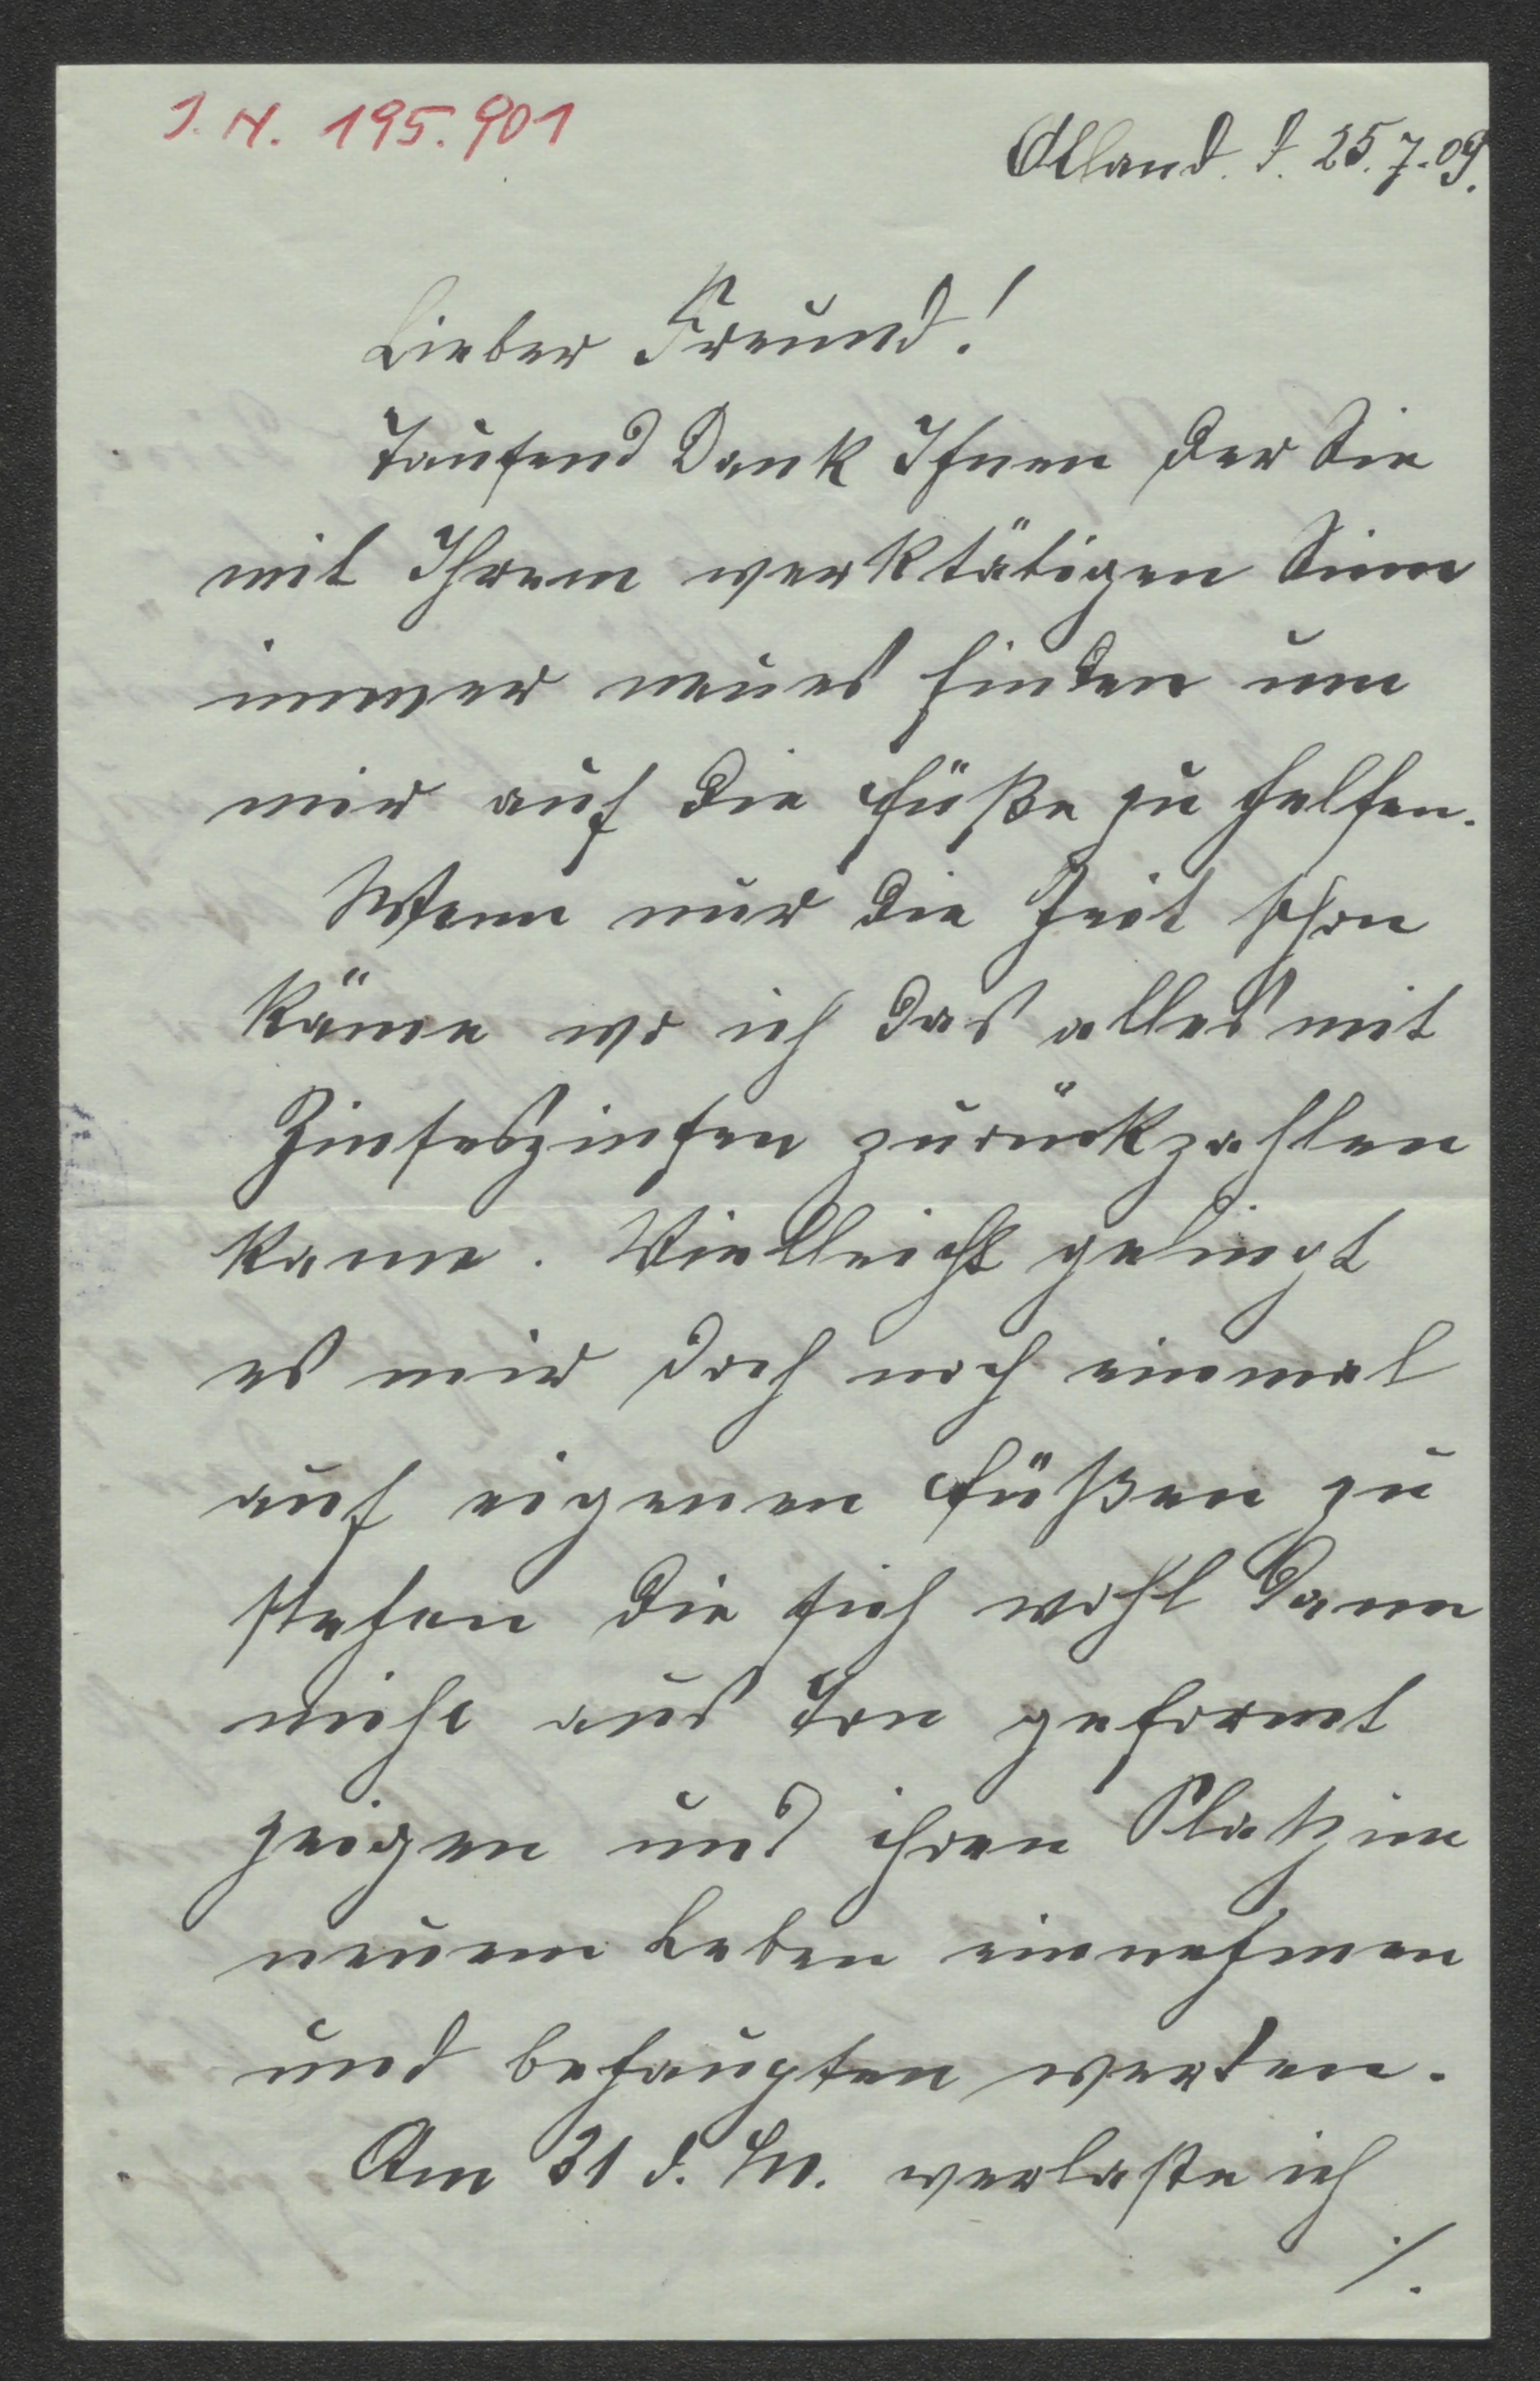 J. N. 195.901
Alland. d. 25.7.09.
Lieber Freund!
Tausend Dank Ihnen der Sie
mit Ihrem werktätigen Sinn
immer neues finden um
mir auf die Füße zu helfen.
Wenn nur die Zeit schon
käme wo ich das alles mit
Zinseszinsen zurückzahlen
kann. Vielleicht gelingt
es mir doch noch einmal
auf eigenen Füßen zu
stehen die sich wohl dann
nicht aus Ton geformt
zeigen und ihren Platz im
neuem Leben einnehmen
und behaupten werden.
Am 31 d. M. verlaße ich
./.